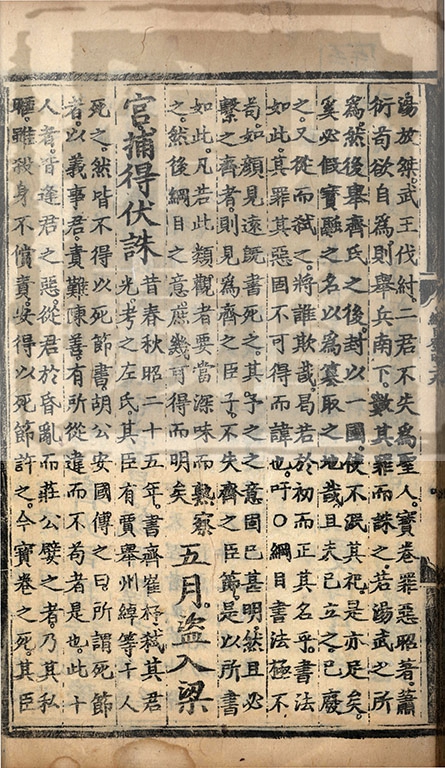 湯放桀武王伐紂二君不失為聖人寶卷罪惡昭著蕭
衍苟欲自為則舉兵南下數其罪而誅之若湯武之所
為然後舉齊氏之後封以一國使不泯其祀是亦足矣
奚必假寶融之名以為篡取之地哉且夫已立之已廢
之又從而弒之將誰欺哉曷若於初而正其名乎書法
如此其罪其惡固不可得而諱也吁○綱目書法極不
苟如顏見遠既書死之其予之之意固已甚明然且必
繫之齊者則見為齊之臣子不失齊之臣節是以所書
如此凡若此類觀者要當深味而熟察
之然後綱目之意庶幾可得而明矣
五月盜入梁
官捕得伏誅
昔春秋昭二十五年書齊崔杼弒其君
光考之左氏其臣有賈舉州綽等十人
死之然皆不得以死節書胡公安國傳之曰所謂死節
者以義事君責難陳善有所從違而不苟者是也此十
人者皆逢君之惡從君於昏亂而莊公嬖之者乃其私
暱雖殺身不償責安得以死節許之今寶卷之死其臣